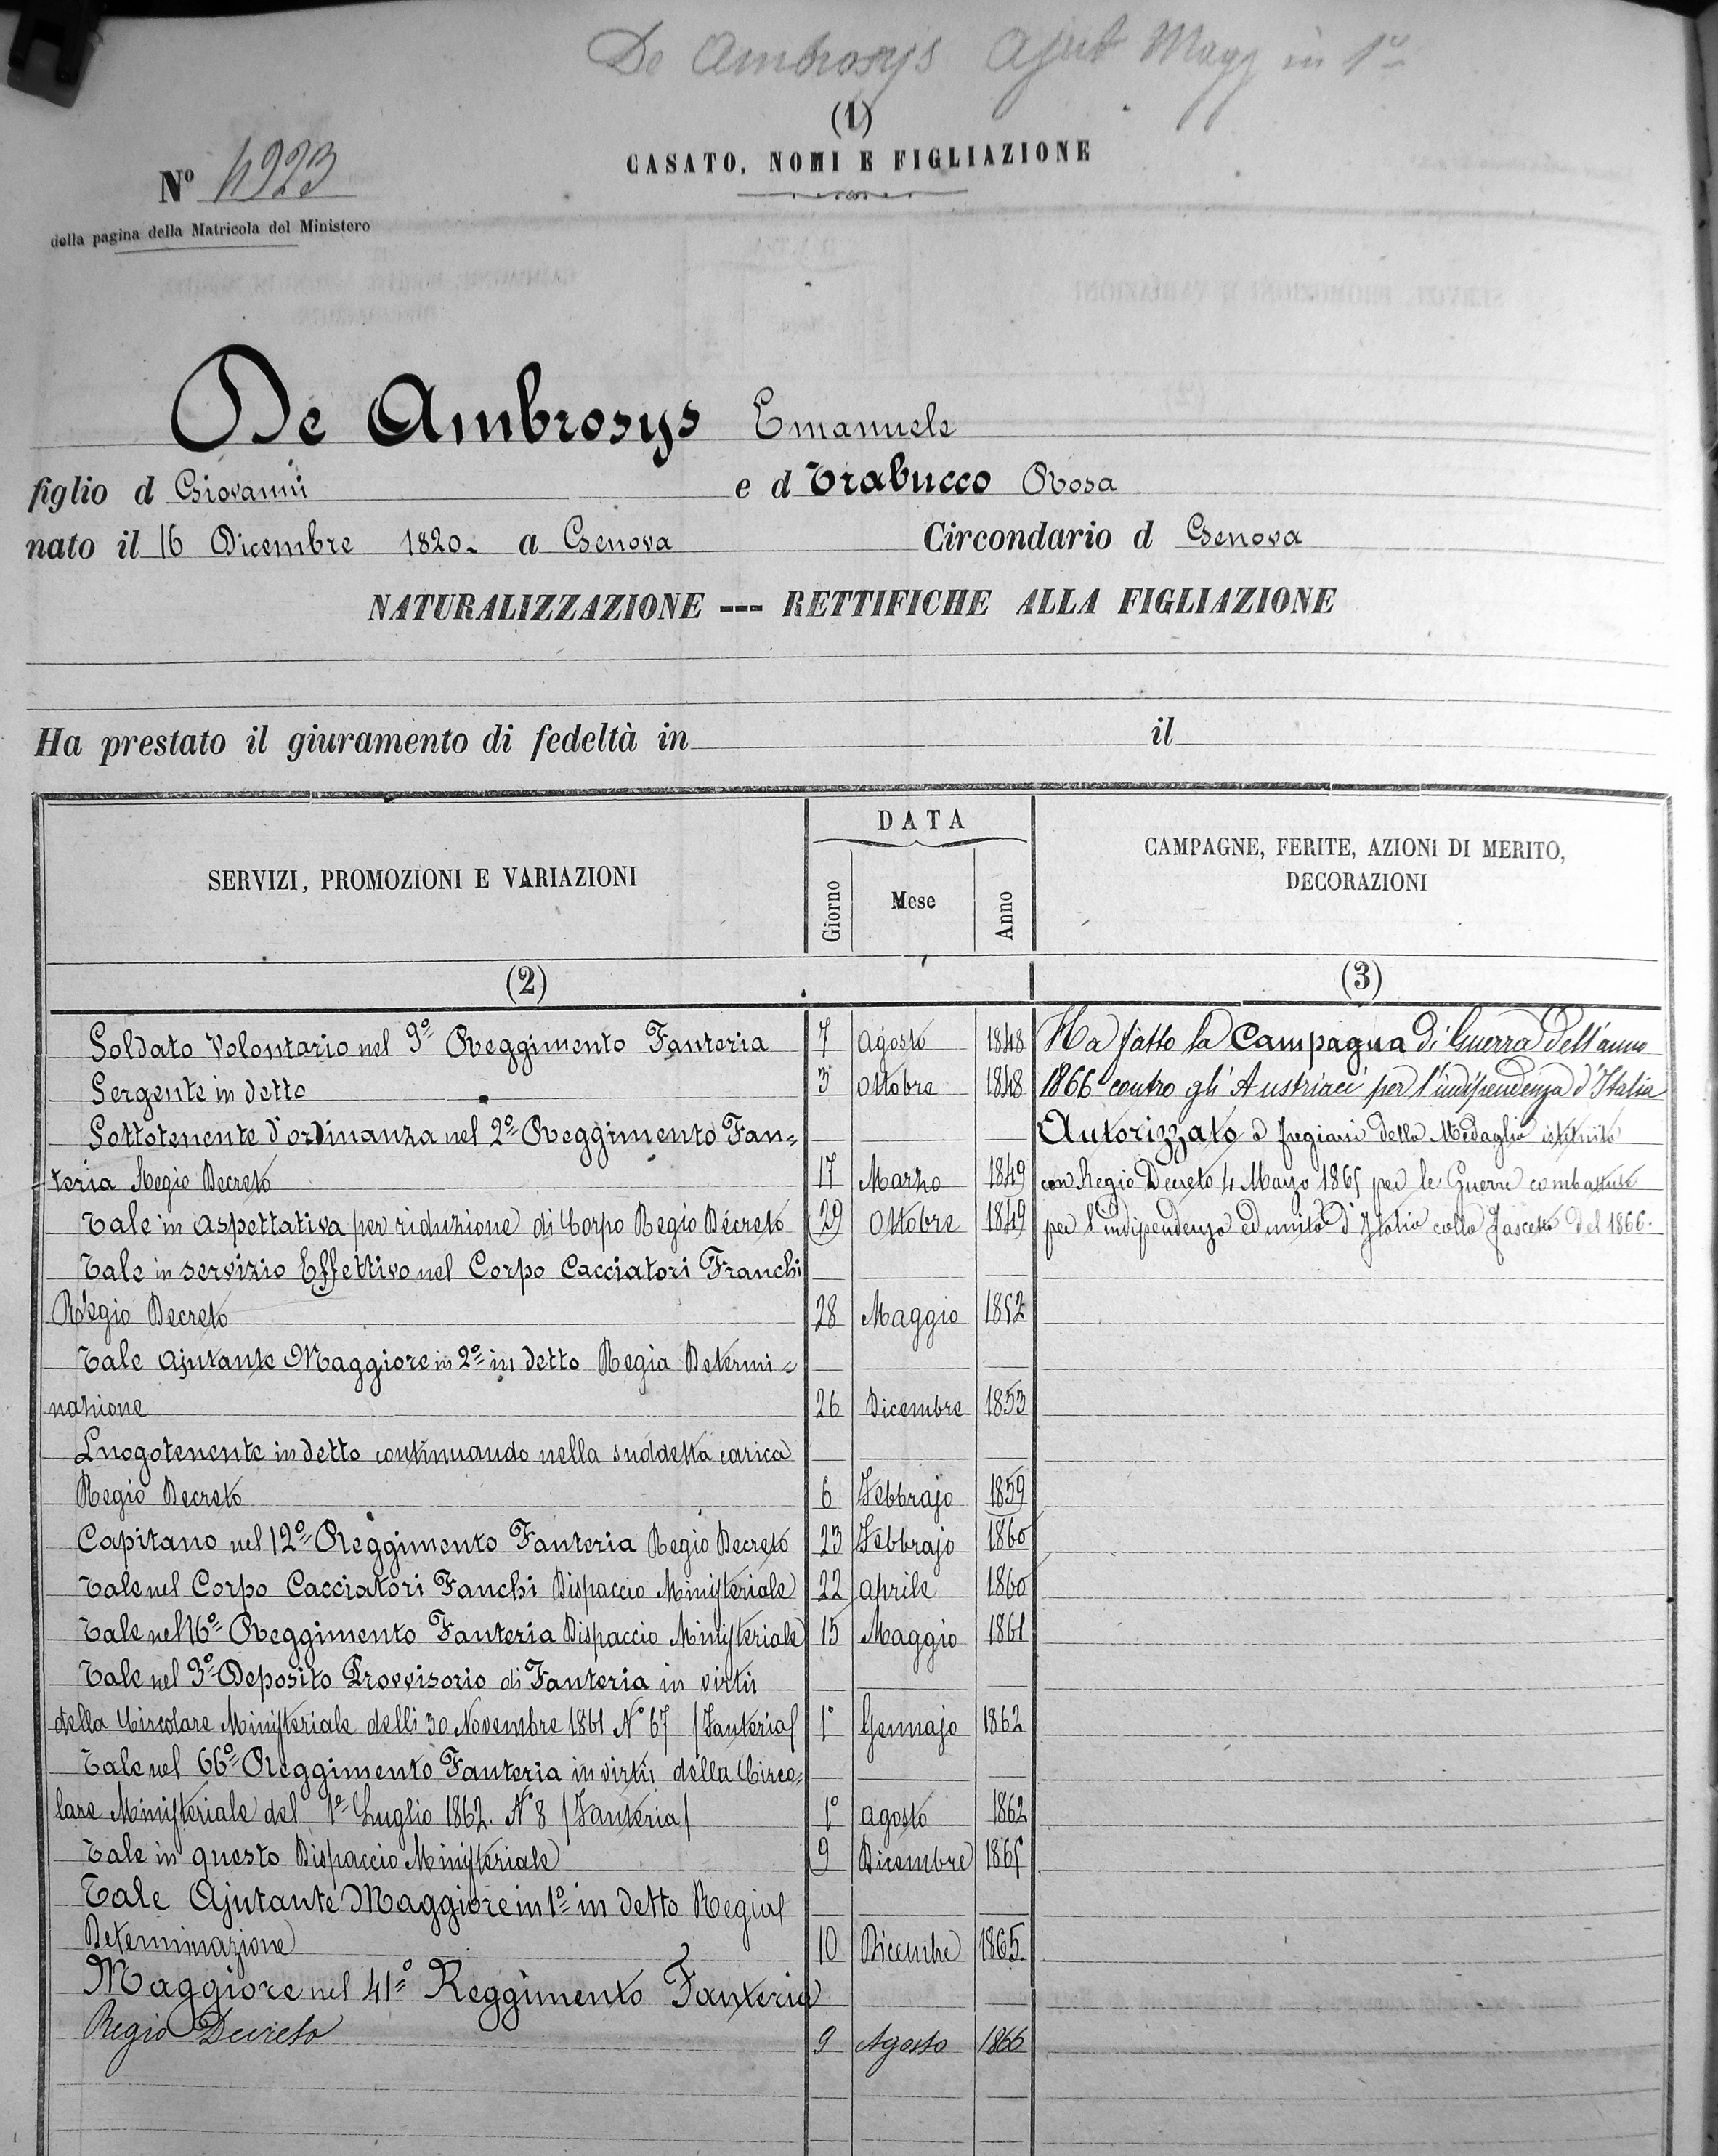 De Ambrosys Ajut Magg in 1º
(1)
CASATO, NOMI E FIGLIAZIONE
Nº 4923
della pagina della Matricola del Ministero
De Ambrosys Emanuele
figlio d Giovanni e d Trabucco Rosa
nato il 16 Dicembre 1820. a Genova Circondario d Genova
NATURALIZZAZIONE --- RETTIFICHE ALLA FIGLIAZIONE
Ha prestato il giuramento di fedeltà in il
SERVIZI, PROMOZIONI E VARIAZIONI
DATA
Giorno Mese Anno
CAMPAGNE, FERITE, AZIONI DI MERITO,
DECORAZIONI
(2) (3)
Soldato Volontario nel 9º Reggimento Fanteria 7 Agosto 1848 Ha fatto la Campagna di Guerra dell'anno
Sergente in detto 3 Ottobre 1848 1866 contro gli Austriaci per l'indipendenza d'Italia
Sottotenente d'ordinanza nel 2º Reggimento Fan= Autorizzato a fregiarsi della Medaglia istituita
teria Regio Decreto 17 Marzo 1849 con Regio Decreto 4 Marzo 1865 per le Guerre combattute
Tale in aspettativa per riduzione di Corpo Regio Decreto 29 Ottobre 1849 per l'indipendenza ed unità d'Italia colla fascetta del 1866.
Tale in servizio Effettivo nel Corpo Cacciatori Franchi
Regio Decreto 28 Maggio 1852
Tale Ajutante Maggiore in 2º in detto Regia Determi=
nazione 26 Dicembre 1853
Luogotenente in detto continuando nella suddetta carica
Regio Decreto 6 Febbrajo 1859
Capitano nel 12º Reggimento Fanteria Regio Decreto 23 Febbrajo 1860
Tale nel Corpo Cacciatori Fanchi Dispaccio Ministeriale 22 Aprile 1860
Tale nel 16º Reggimento Fanteria Dispaccio Ministeriale 15 Maggio 1861
Tale nel 3º Deposito Provvisorio di Fanteria in virtù
della Circolare Ministeriale delli 30 Novembre 1861 Nº 67 /Fanteria/ 1º Gennajo 1862
Tale nel 66º Reggimento Fanteria in virtù della Circo=
lare Ministeriale del 1º Luglio 1862. Nº 8 /Fanteria/ 1º Agosto 1862
Tale in questo Dispaccio Ministeriale 9 Dicembre 1865
Tale Ajutante Maggiore in 1º in detto Regia
Determinazione 10 Dicembre 1865.
Maggiore nel 41º Reggimento Fanteria
Regio Decreto 9 Agosto 1866